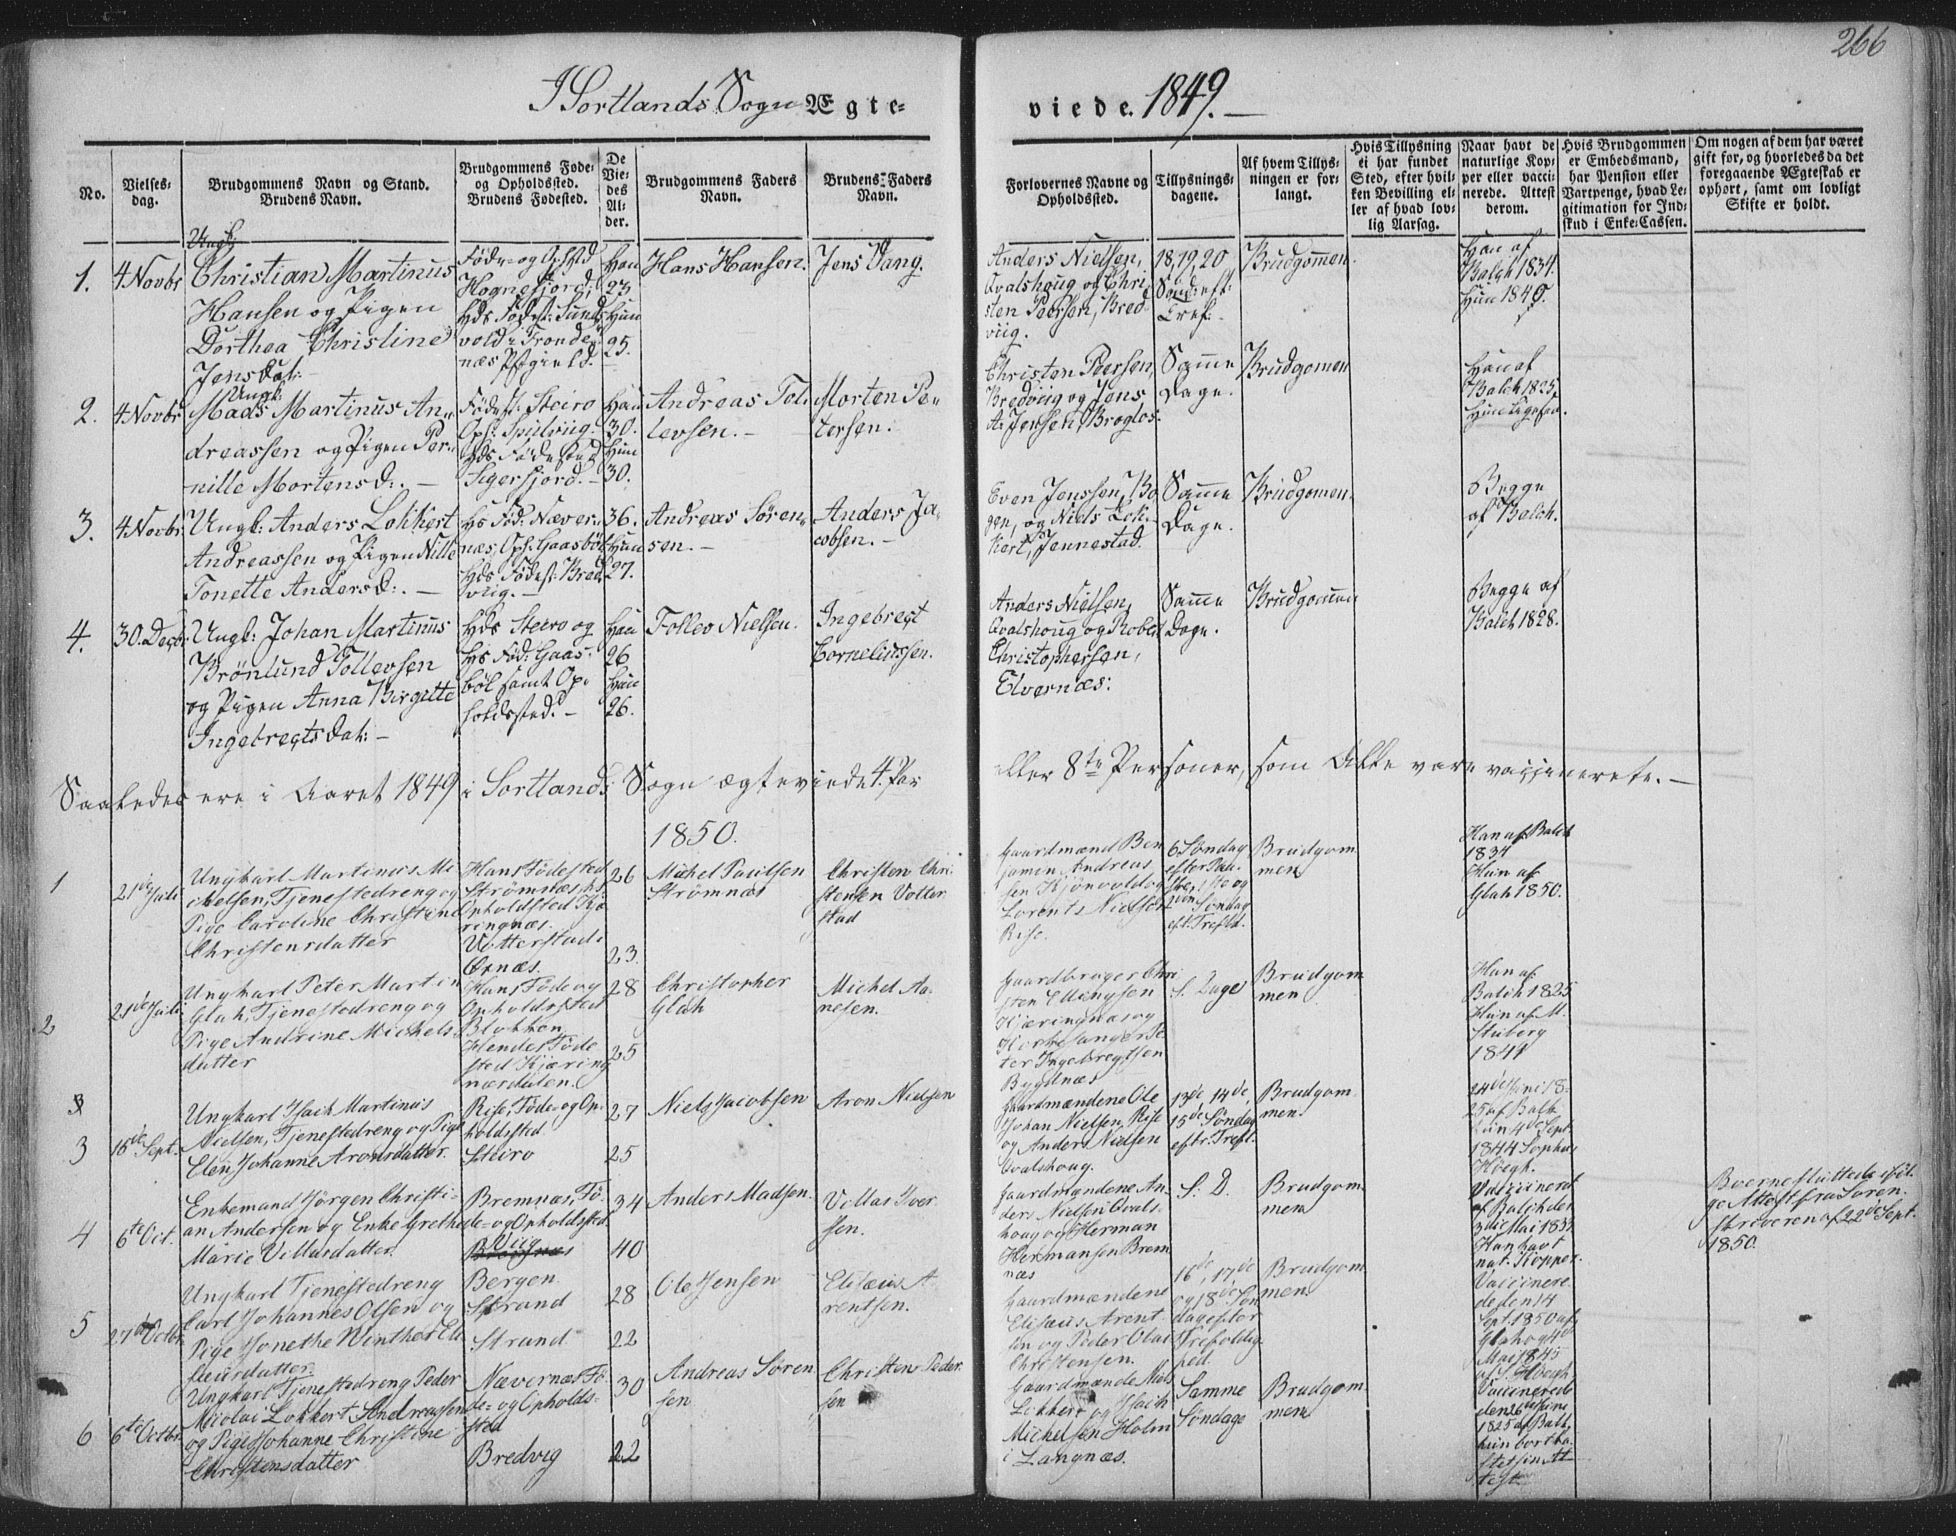 266
I Sortlands Sogn Ægte-
viede. 1849. —
No.
Vielses-
dag.
Brudgommens Navn og Stand.
Brudens Navn.
Brudgommens Føde-
og Opholdssted.
Brudens Fødested.
De
Vie-
des
Al-
der.
Brudgommens Faders
Navn.
Brudens Faders
Navn.
Forlovernes Navne og
Opholdssted.
Tillysnings-
dagene.
Af hvem Tillys-
ningen er for-
langt.
Hvis Tillysning
ei har fundet
Sted, efter hvil-
ken Bevilling el-
ler af hvad lov-
lig Aarsag.
Naar havt de
naturlige Kop-
per eller vacci-
nerede. Attest
derom.
Hvis Brudgommen
er Embedsmand,
har Pension eller
Vartpenge, hvad Le-
gitimation for Ind-
skud i Enke-Cassen.
Om nogen af dem har været
gift før, og hvorledes da det
foregaaende Ægteskab er
ophørt, samt om lovligt
Skifte er holdt.
1.
4 Novbr
Ungk:
Christian Martinus
Hansen og Pigen
Dorthea Christine
Jensdat:
Føde- og Ophold
Hognfjord:
Hds Fødest: Sund
vold i Tronde-
næs Pgield.
Han
23
Hun
25.
Hans Hansen.
Jens Vang.
Anders Nielsen,
Qvalshoug og Chri
sten Peersen, Bred
viig.
18, 19, 20
Sønd: eft:
Tref:
Brudgomen.
Han af
Balch 1834.
Hun 1840.
2.
4 Novbr
Ungk:
Mads Martinus An-
dreassen og Pigen Per-
nille Mortensd:. —
Fødest: Steiro
Oph: Spilviig.
Hds Fødested
Sigerfjord. —
Han
30.
Hun
30.
Andreas Tol-
levsen. —
Morten Pe-
tersen.
Christen Peersen,
Bredviig og Jens
A. Jensen, Brogløs.
Samme
Dage.
Brudgomen
Han af
Balch 1825,
Hun ligesaa.
3.
4 Novbr.
Ungk: Anders Lokkert
Andreassen og Pigen Nille
Tonette Andersd:. —
Hs Fød: Næver-
næs, Oph: Gaasbøl
Hds Fødest: Bred
viig. —
36.
Hun
27.
Andreas Sören-
sen. —
Anders Ja-
cobsen. —
Even Jenssen, Bo
gen, og Niels Lok-
kert, Jennestad.
Samme
Dage.
Brudgomen.
Begge
af Balch.
4.
30. Decbr.
Ungk: Johan Martinus
Brönlund Tollevsen
og Pigen Anna Birgitte
Ingebregtsdat: —
Hds Steiro og
Hs Fød: Gaas-
bøl samt Op-
holdssted. —
Han
26
Hun
26.
Tollev Nielsen.
Ingebregt
Corneliussen.
Anders Nielsen,
Qvalshoug og Robert
Christophersen,
Elvernæs:
Samme
Dage.
Brudgomen
Begge af
Balch 1828.
Saaledes ere i Aaret 1849 i Sortlands Sogn ægteviede 4. Par
eller 8te Personer, som Alle vare vaccinerede. —
1850.
1
21de Juli
Ungkarl Martinus Mi
chelsen, Tjenestedreng og
Pige Caroline Christine
Christensdatter
Hans Fødested
Strømnæs hs
Opholdsted Kjæ
ringnæs.
Votterstad i
Oxnæs.
26
23.
Michel Paulsen
Strømnæs
Christen Chri
stensen Votter
stad
Gaardmænd Ben
jamin Andreas
sen Kjönvold og
Lorents Nielsen
Rise.
6 Søndag
efter Paa-
ske, 1ste og
2den Søndag
eft. Trefold.
Brudgom
men
Han af Balch
1834
Hun af
Glah 1850.
2
21de Juli
Ungkarl Peter Martin
Glah, Tjenestedreng og
Pige Andrine Michels-
datter
Hans Føde og
Opholdssted
Blokken
Hendes Føde
sted Kjæring
næsdalen.
28
25
Christopher
Glah
Michel Aa-
nesen.
Gaardbruger Chri
sten Ellingsen
Kjæringnæs og
Kirkesanger Pe-
ter Ingebregtsen
Bygdnæs
S. Dage
Brudgom
men
Han af
Balch 1825
Hun af M.
Stuberg
1841
3
3
15de Sept.
Ungkarl Isach Martinus
Nielsen, Tjenestedreng og Pige
Elen Johanne Aronsdatter.
Rise, Føde- og Op-
holdsted
Steiro
27
25
Niels Jacobsen
Aron Nielsen
Gaardmændene Ole
Johan Nielsen, Rise
og Anders Nielsen
Qvalshoug.
13de, 14de,
15de Søndag
eftr. Trefl.
Brudgom
men
24de Juni 18-
25 af Balk
hun 4de Sept.
1844 Sophus
Høegh.
4
6te Oct.
Enkemand Jörgen Christi-
an Andersen og Enke Grethe
Marie Villasdatter.
Bremnæs, Fö-
de- og Opholdsted
Viig
34
40
Anders Madsen.
Villas Iver
sen.
Gaardmændene An-
ders Nielsen Qvals-
houg og Herman
Hermansen Brem
næs
S. D.
Brudgom
men
Vaccineret
af Balch den
3die Mai 1834
Hun havt
nat. Kopper.
Hvornefluttede iføl
ge Attest fra Soren-
skriveren af 22de Sept.
1850.
5
27de Octbr.
Ungkarl Tjenestedreng
Carl Johannes Olsen og
Pige Jonethe Winther Eli
sæusdatter.
Bergen
Strand
Strand
28
22
Ole Jensen
Elisæus A-
rentsen.
Gaardmændene
Elisæus Arent
sen og Peder Olai
Christensen.
16de, 17de
og 18de Søn
dag efter
Trefoldig
hed.
Brudgom
men
Vaccinere
de den 14
Sept. 1850 af
Glah og 4de
Mai 1845
af S. Høegh
6
6te Octbr.
Ungkarl Tjenestedreng Peder
Nicolai Lokkert Andreassen
og Pige Johanne Christine
Christensdatter
Nævernæs Fö-
de- og Opholds-
sted
Bredvig
30
22
Andreas Sören
sen
Christen Peder
sen
Gaardmænde Niels
Lokkert og Isach
Michelsen Holm
i Langnæs.
Samme
Søndage
Brudgom
men
Vaccinerede
den 26de Juni
1825 af Balk,
hun bortka-
stet sin At-
test